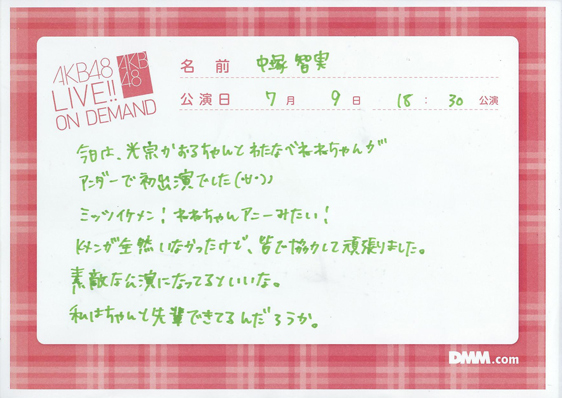 AKB48
LIVE!!
ON DEMAND
AKB
48
名前 中塚智実
公演日 7月 9日 18:30 公演
今日は、光宗かおるちゃんとわたなべねねちゃんが
アンダーで初出演でした(・∀・)
ミッツイケメン!ねねちゃんアニーみたい!
Kメンが全然いなかったけど、皆で協力して頑張りました。
素敵な公演になってるといいな。
私はちゃんと先輩できてるんだろうか。
DMM.com